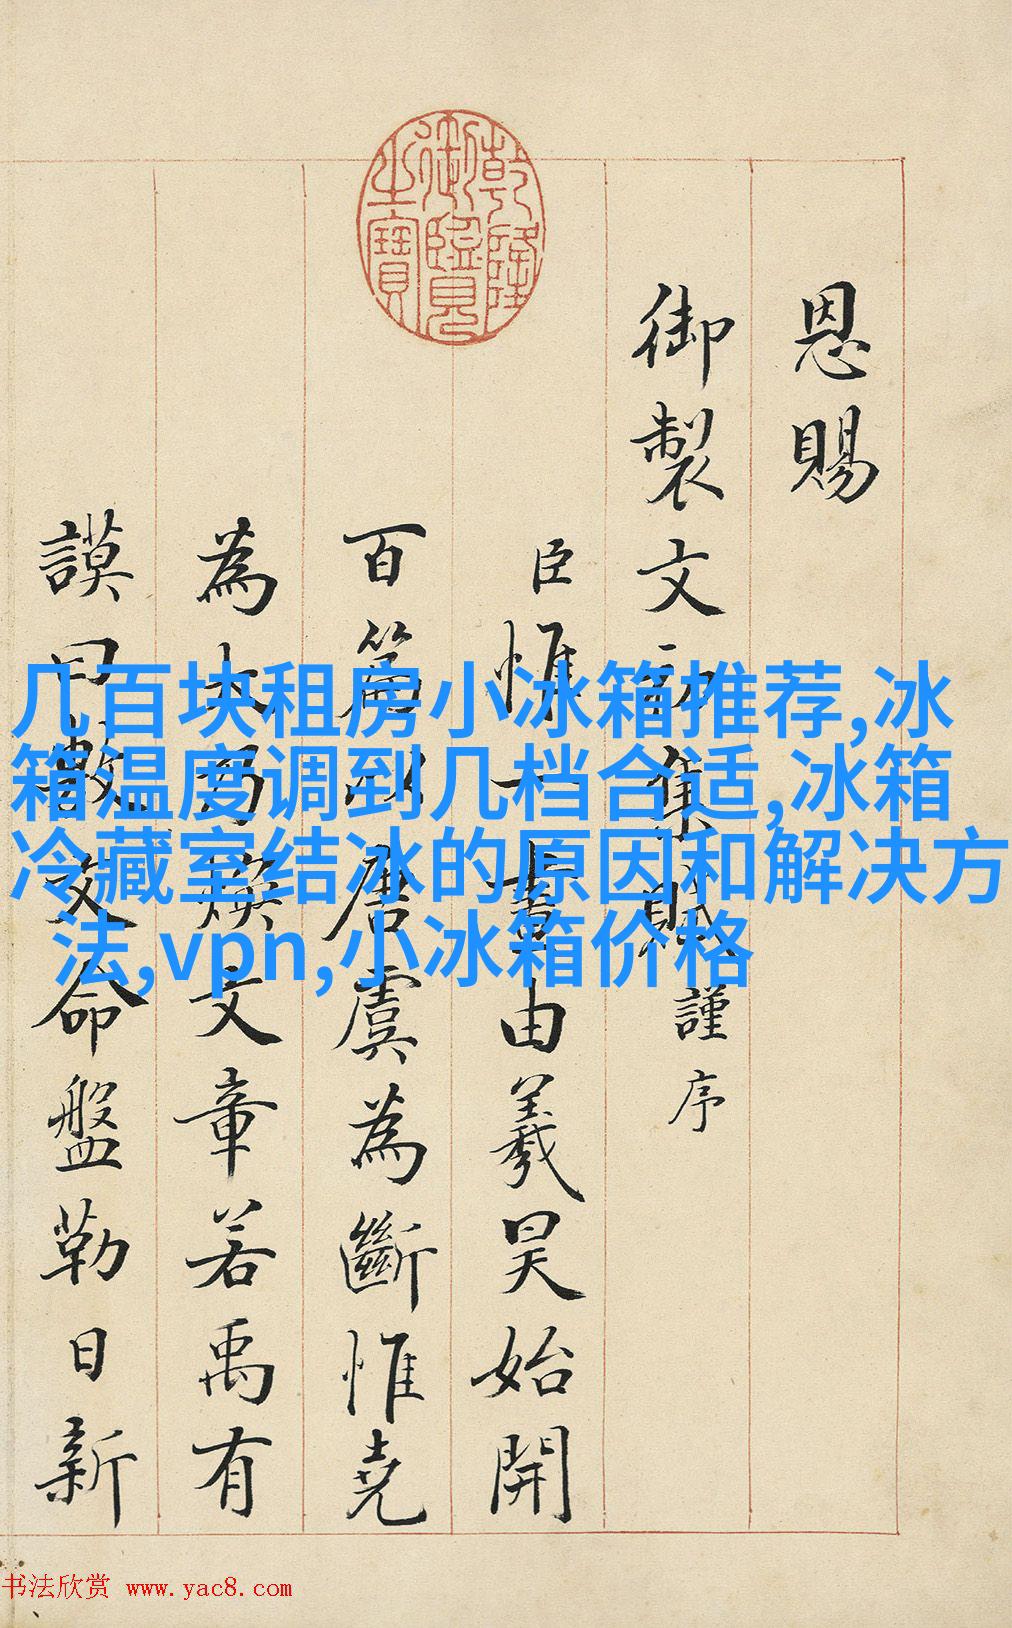 乾隆
御覽
之寶
恩賜
御製文初集賦謹序
臣惟一畫由羲昊始開
百篇以唐虞為斷惟堯
為大乃煥文章若禹有
謨曰敷文命盤勒日新
几百块租房小冰箱推荐,冰
箱温度调到几档合适,冰箱
冷藏室结冰的原因和解决方
法,vpn,小冰箱价格
书法欣赏 www.yac8.com